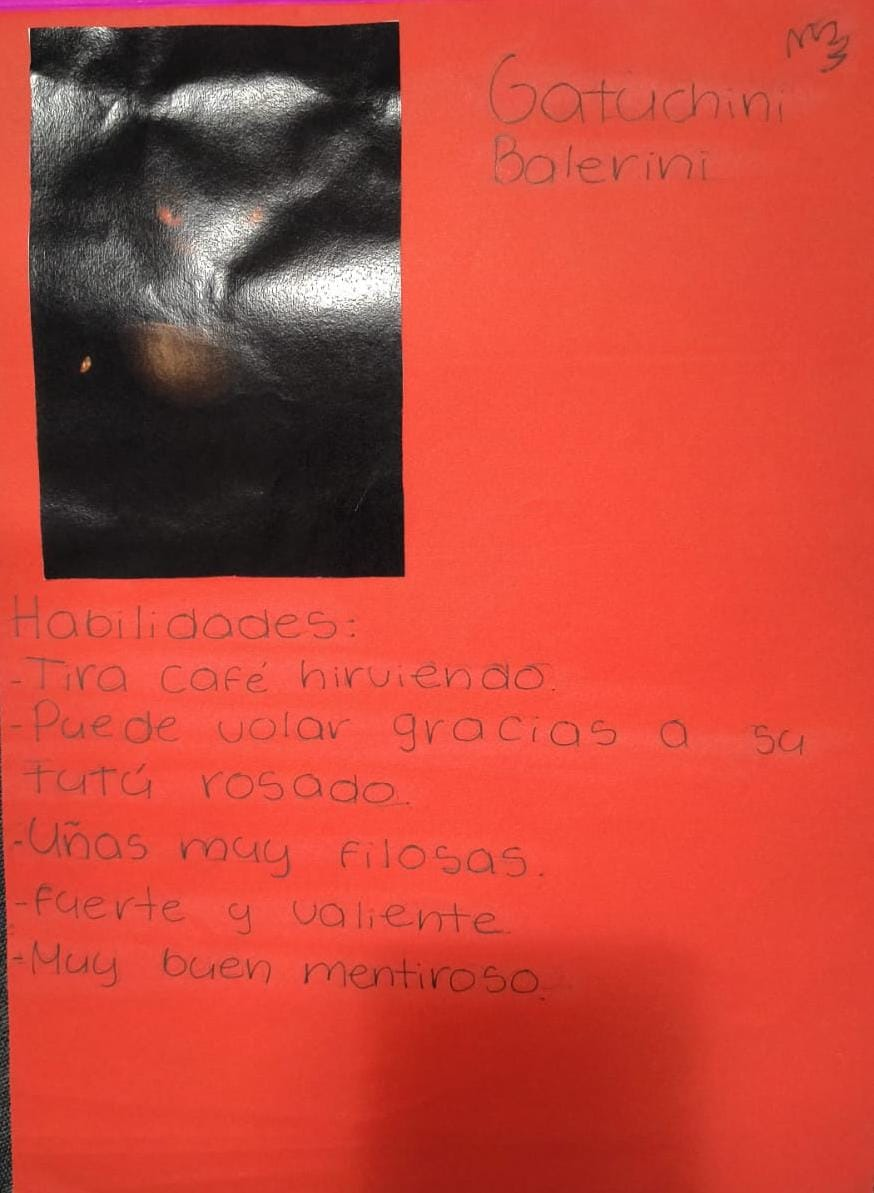 Gatuchini
Balerini
Habilidades:
-Tira café hirviendo.
-Puede volar gracias a su
tutú rosado.
-Uñas muy filosas.
-Fuerte y valiente
-Muy buen mentiroso.